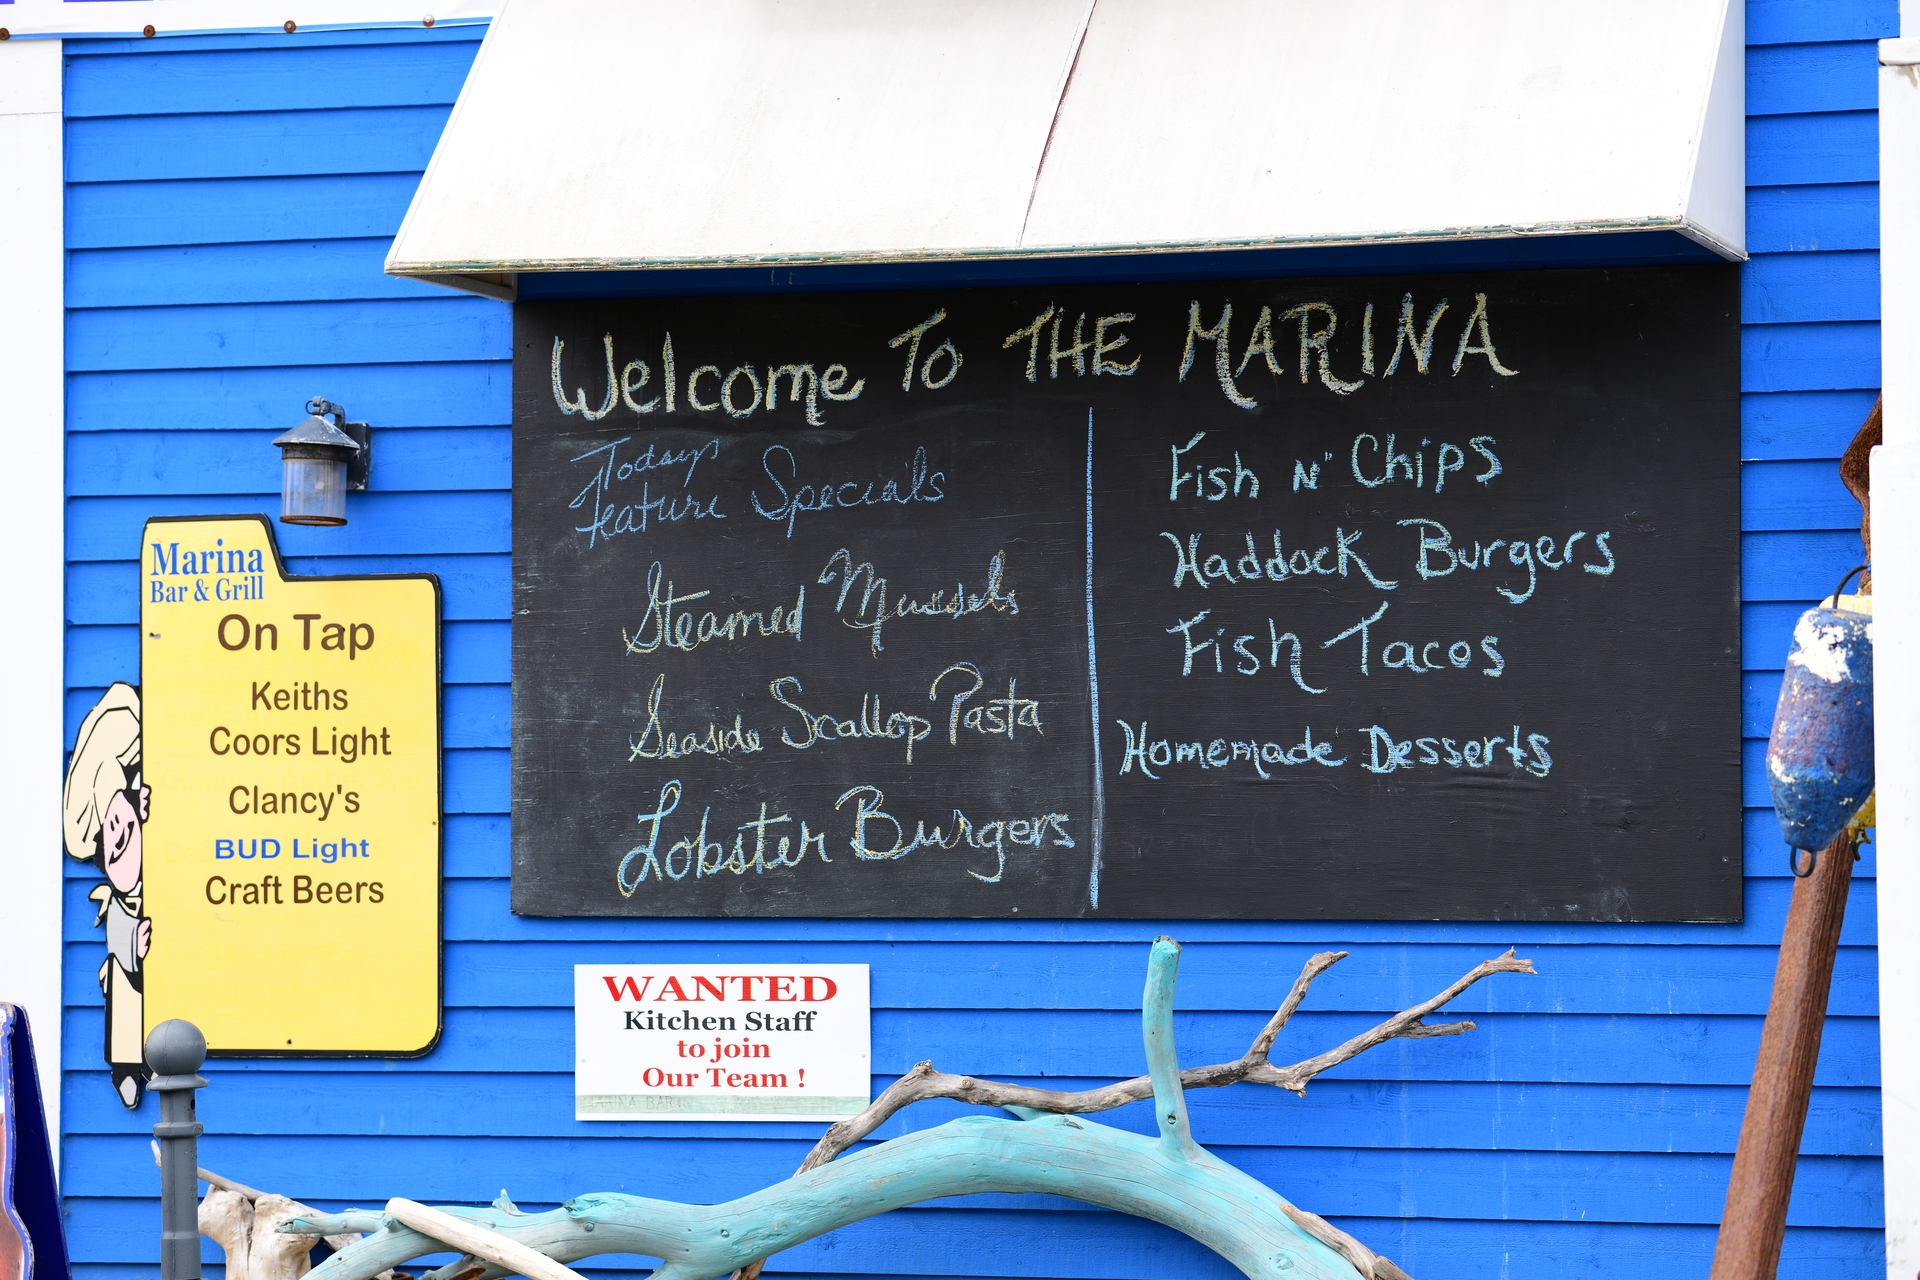 Welcome To THE MARINA
Todays
Feature Specials
Steamed Mussels
Seaside Scallop Pasta
Lobster Burgers
Fish N' Chips
Haddock Burgers
Fish Tacos
Homemade Desserts
Marina
Bar & Grill
On Tap
Keiths
Coors Light
Clancy's
BUD Light
Craft Beers
WANTED
Kitchen Staff
to join
Our Team !